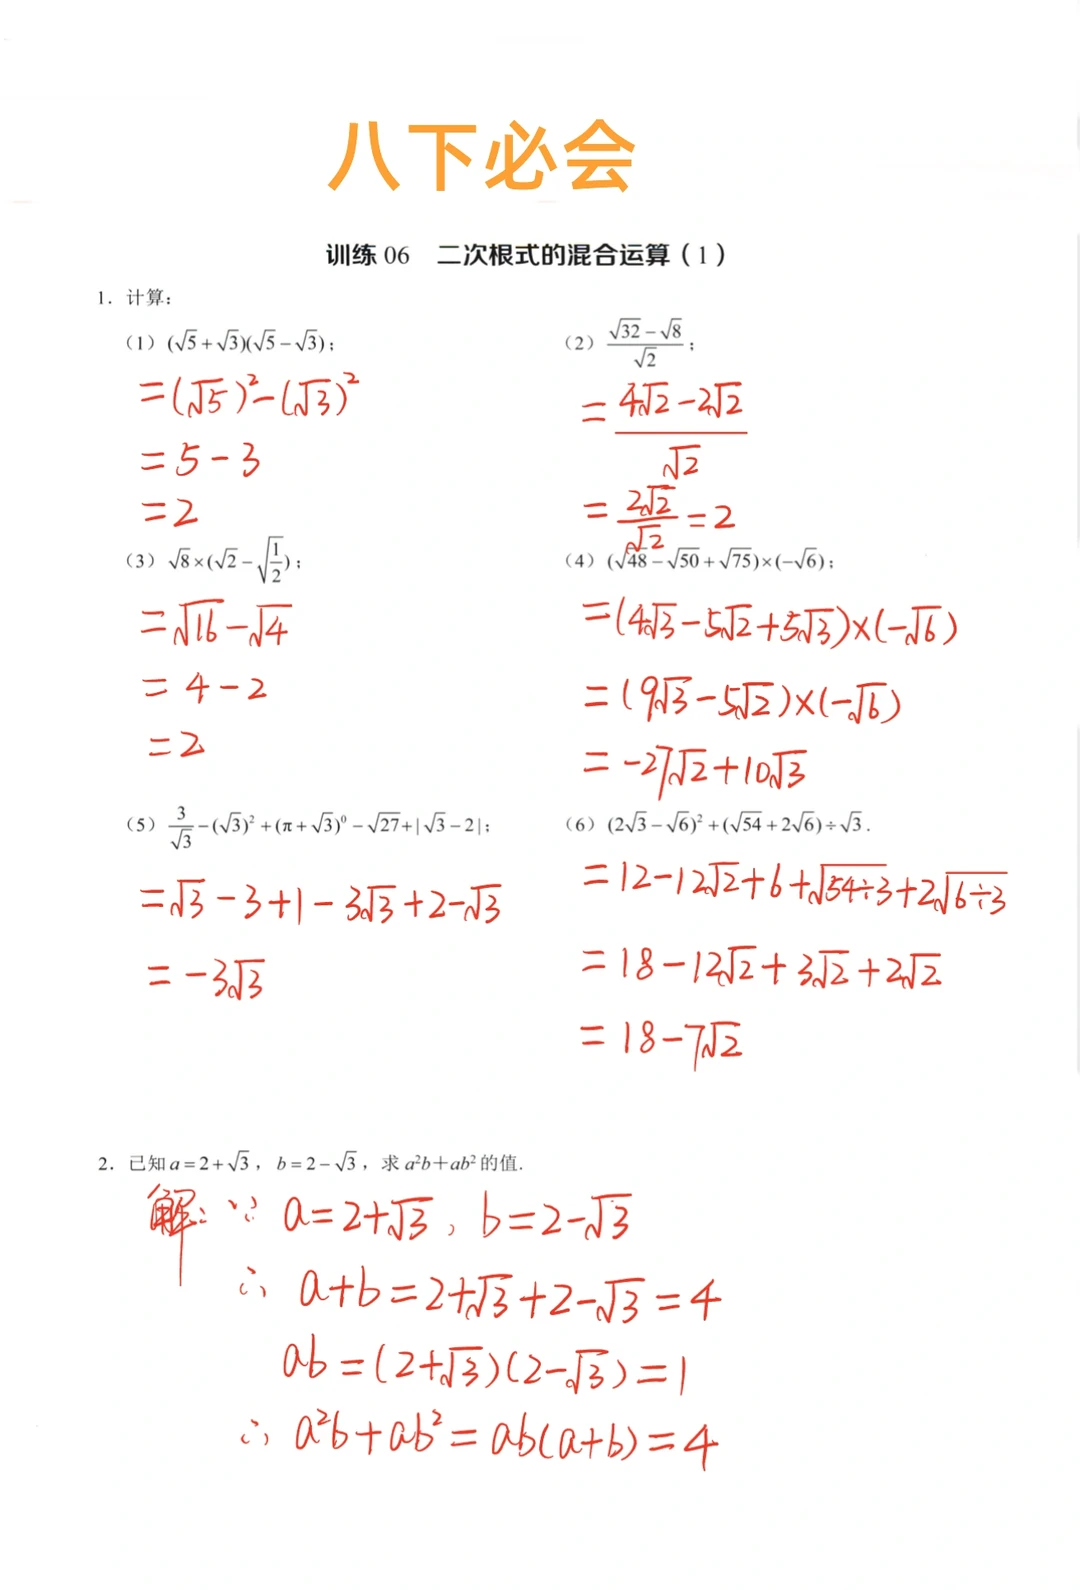 八下必会
训练 06 二次根式的混合运算（1）
1. 计算：
（1）(√5+√3)(√5−√3)；
=(√5)²−(√3)²
=5−3
=2
（2）(√32−√8)/√2；
=(4√2−2√2)/√2
=2√2/√2=2
（3）√8×(√2−√(1/2))；
=√16−√4
=4−2
=2
（4）(√48−√50+√75)×(−√6)；
=(4√3−5√2+5√3)×(−√6)
=(9√3−5√2)×(−√6)
=−27√2+10√3
（5）3/√3−(√3)²+(π+√3)⁰−√27+|√3−2|；
=√3−3+1−3√3+2−√3
=−3√3
（6）(2√3−√6)²+(√54+2√6)÷√3.
=12−12√2+6+√(54÷3)+2√(6÷3)
=18−12√2+3√2+2√2
=18−7√2
2. 已知a=2+√3，b=2−√3，求a²b+ab²的值.
解：∵ a=2+√3，b=2−√3
∴ a+b=2+√3+2−√3=4
ab=(2+√3)(2−√3)=1
∴ a²b+ab²=ab(a+b)=4